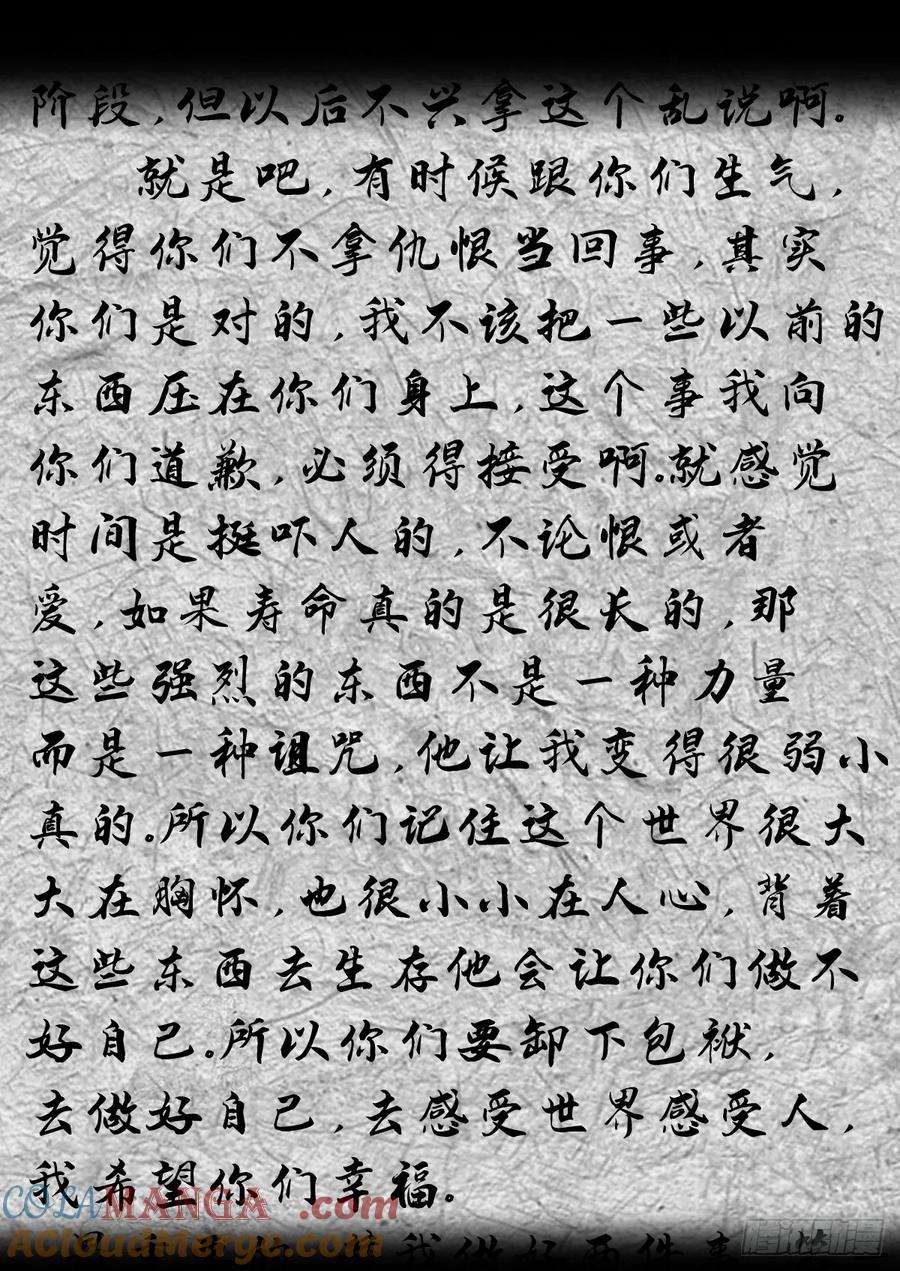 阶段,但以后不兴拿这个乱说啊。
就是吧,有时候跟你们生气,
觉得你们不拿仇恨当回事,其实
你们是对的,我不该把一些以前的
东西压在你们身上,这个事我向
你们道歉,必须得接受啊。就感觉
时间是挺吓人的,不论恨或者
爱,如果寿命真的是很长的,那
这些强烈的东西不是一种力量
而是一种诅咒,他让我变得很弱小
真的。所以你们记住这个世界很大
大在胸怀,也很小小在人心,背着
这些东西去生存他会让你们做不
好自己。所以你们要卸下包袱,
去做好自己,去感受世界感受人,
我希望你们幸福。
我做好两件事
COLAMANGA.com
ACloudMerge.com